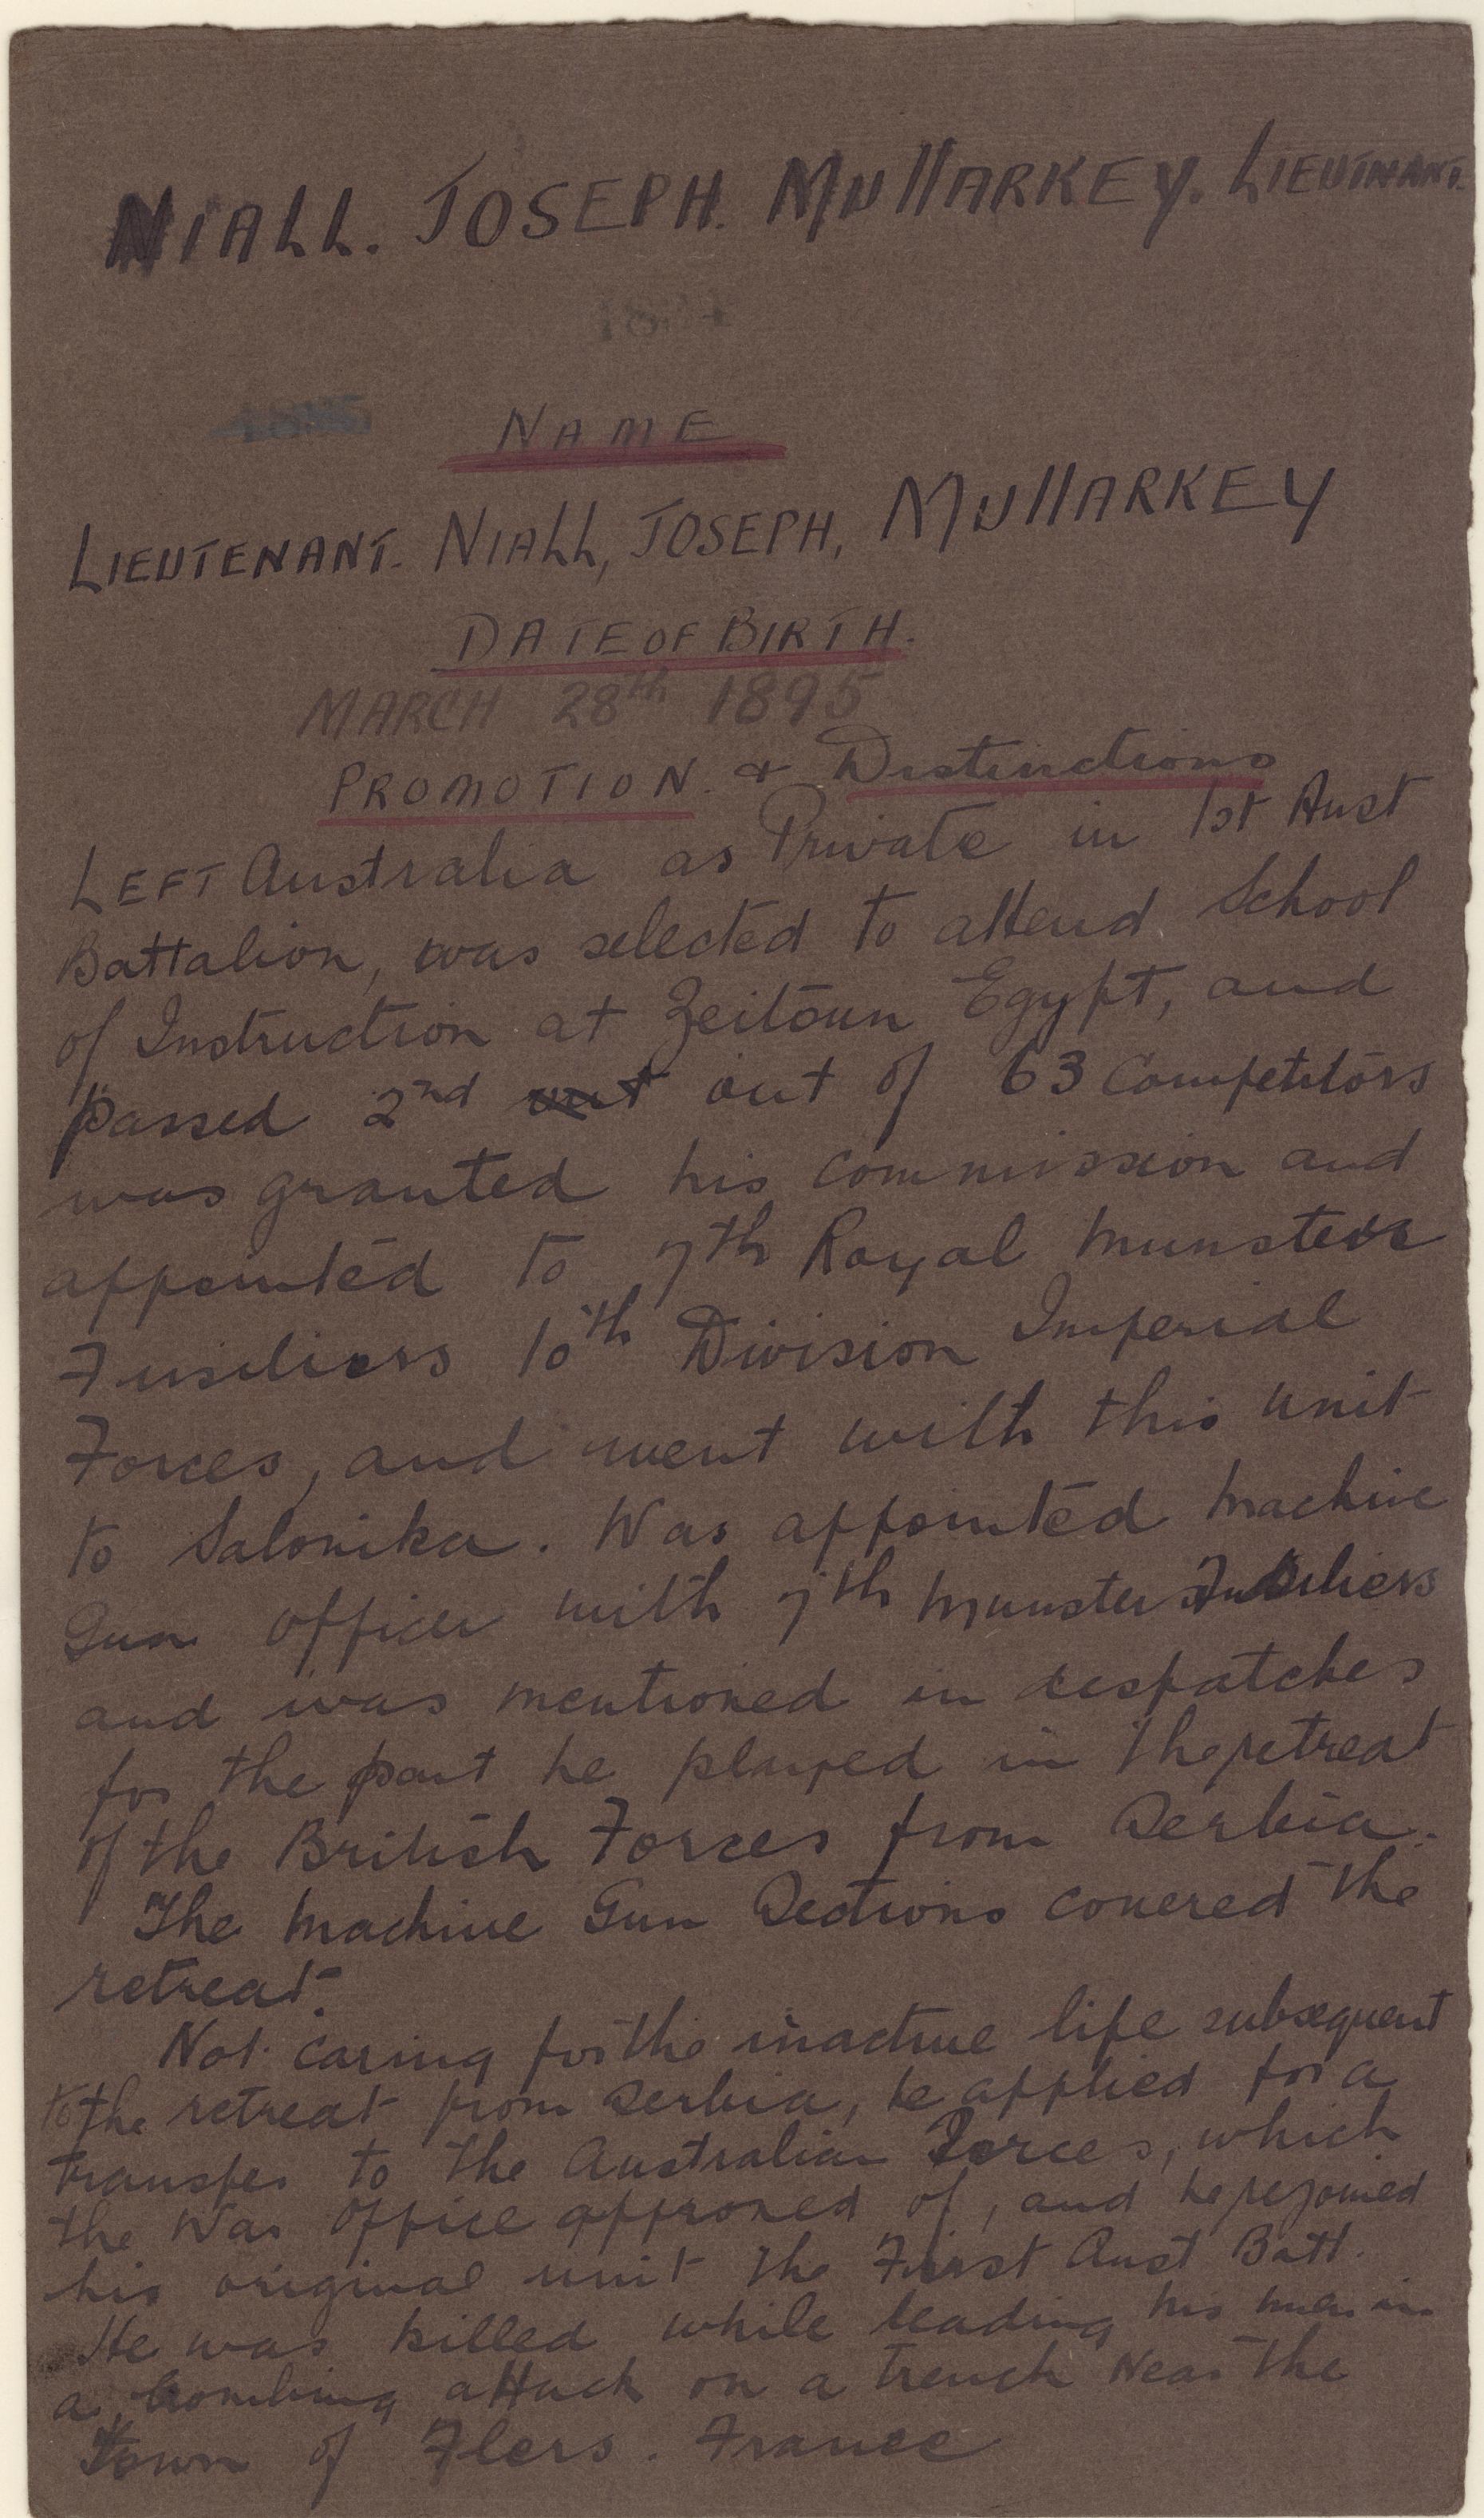 NIALL. JOSEPH. MullARKEY. LIEUTNANT.
NAME
LIEUTENANT. NIALL, JOSEPH, MullARKEY
DATE OF BIRTH.
MARCH 28th 1895
PROMOTION. & Distinctions
LEFT Australia as Private in 1st Aust
Battalion, was selected to attend School
of Instruction at Zeitoun Egypt, and
passed 2nd out out of 63 Competitors
was granted his commission and
appointed to 7th Royal Munster
Fusiliers 10th Division Imperial
Forces, and went with this unit
to Salonika. Was appointed Machine
Gun officer with 7th Munster Fusiliers
and was mentioned in despatches
for the part he played in the retreat
of the British Forces from Serbia.
The Machine Gun Sections covered the
retreat.
Not caring for the inactive life subsequent
to the retreat from Serbia, he applied for a
transfer to the Australian Forces, which
the War Office approved of, and he rejoined
his original unit the First Aust Batt.
He was killed while leading his men in
a bombing attack on a trench near the
Town of Flers. France